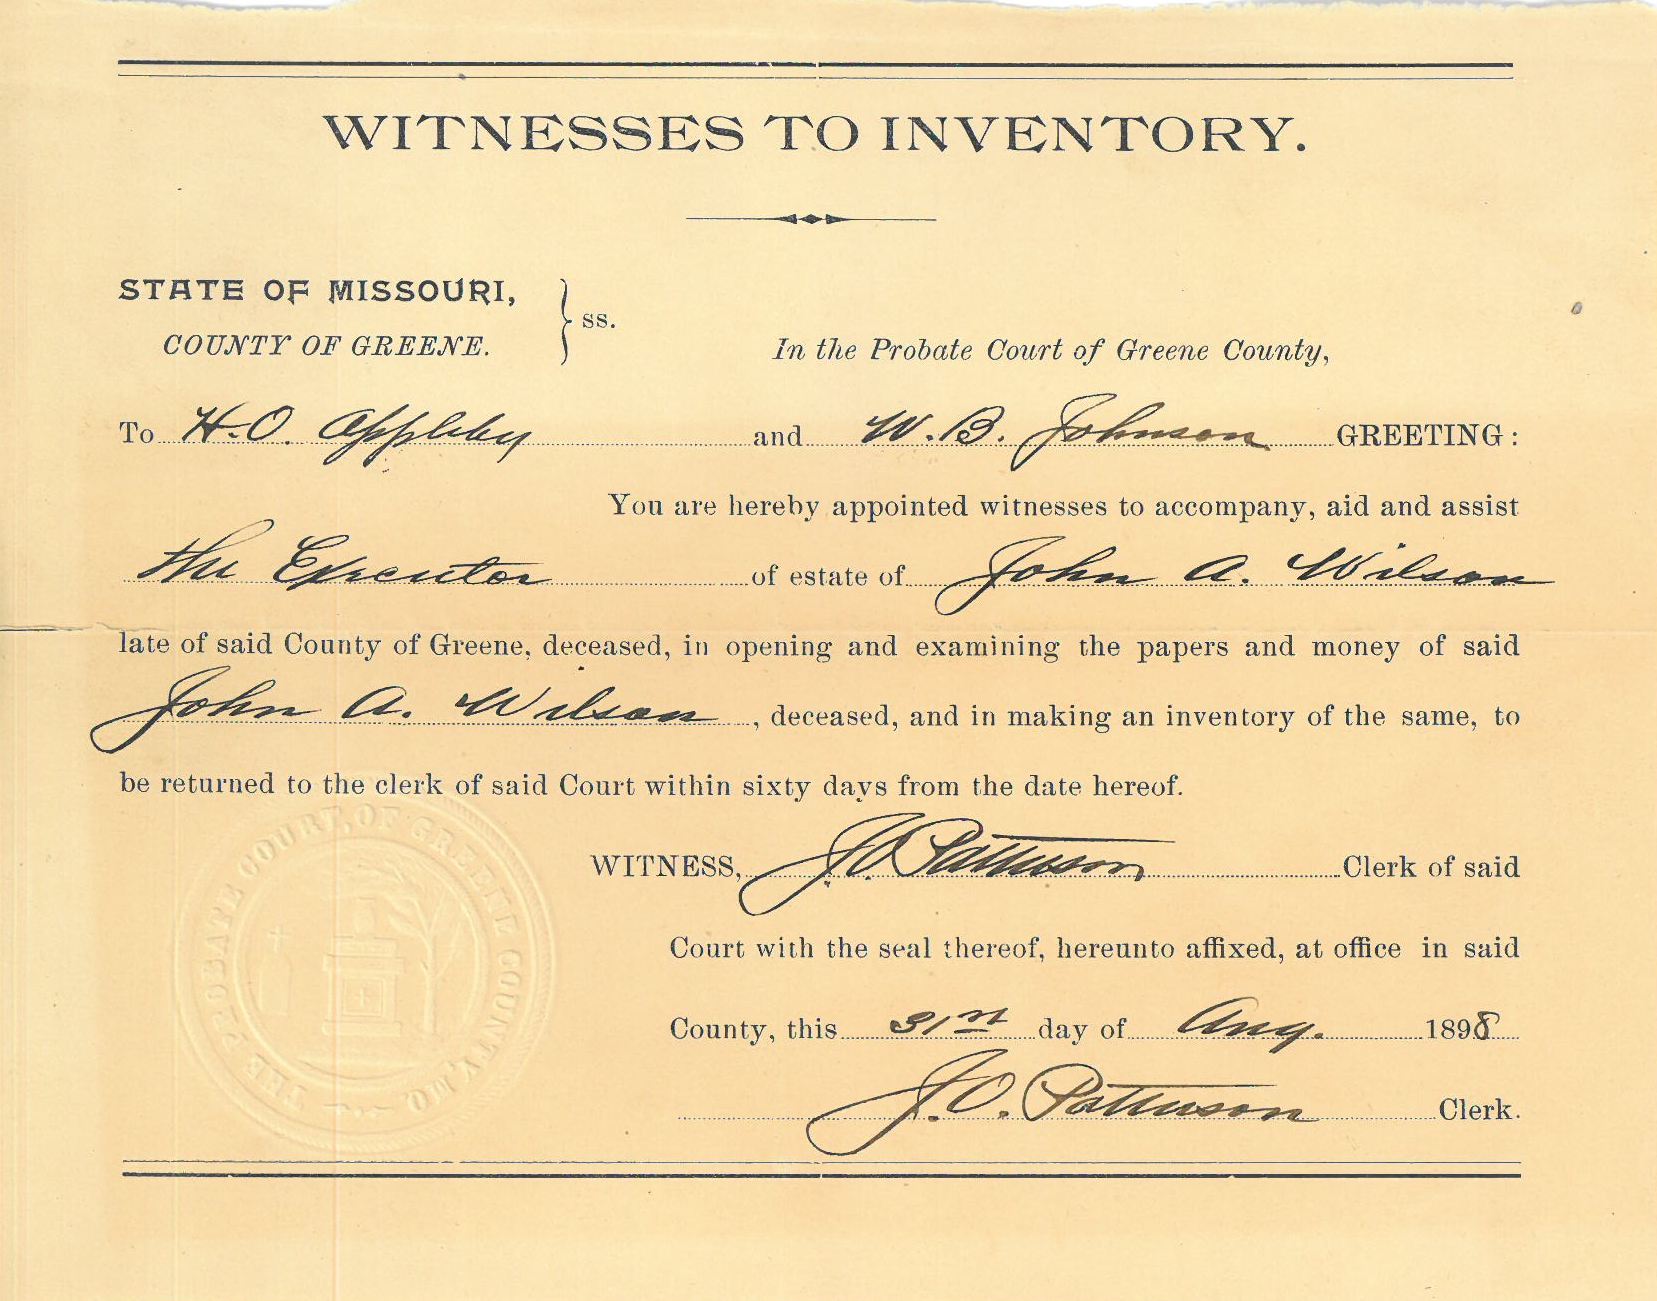 WITNESSES TO INVENTORY.
STATE OF MISSOURI,
COUNTY OF GREENE.
} ss.
In the Probate Court of Greene County,
To H.O. Appleby and W.B. Johnson GREETING:
You are hereby appointed witnesses to accompany, aid and assist
the Executor of estate of John A. Wilson
late of said County of Greene, deceased, in opening and examining the papers and money of said
John A. Wilson, deceased, and in making an inventory of the same, to
be returned to the clerk of said Court within sixty days from the date hereof.
WITNESS, J.O. Patterson Clerk of said
Court with the seal thereof, hereunto affixed, at office in said
County, this 31st day of Aug. 1898
J.O. Patterson Clerk.
THE PROBATE COURT, OF GREENE COUNTY, MO.